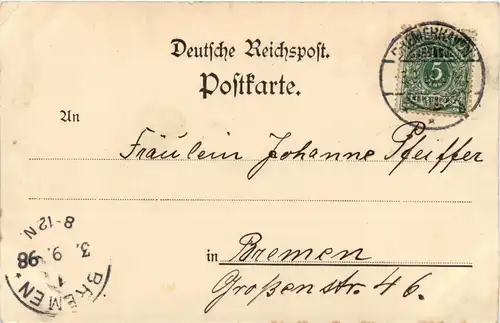 Deutsche Reichspost.
Postkarte.
5
An
Fräulein Johanne Pfeiffer
in Bremen
Großenstr. 46.
BREMEN
3. 9. 98
8-12 N.